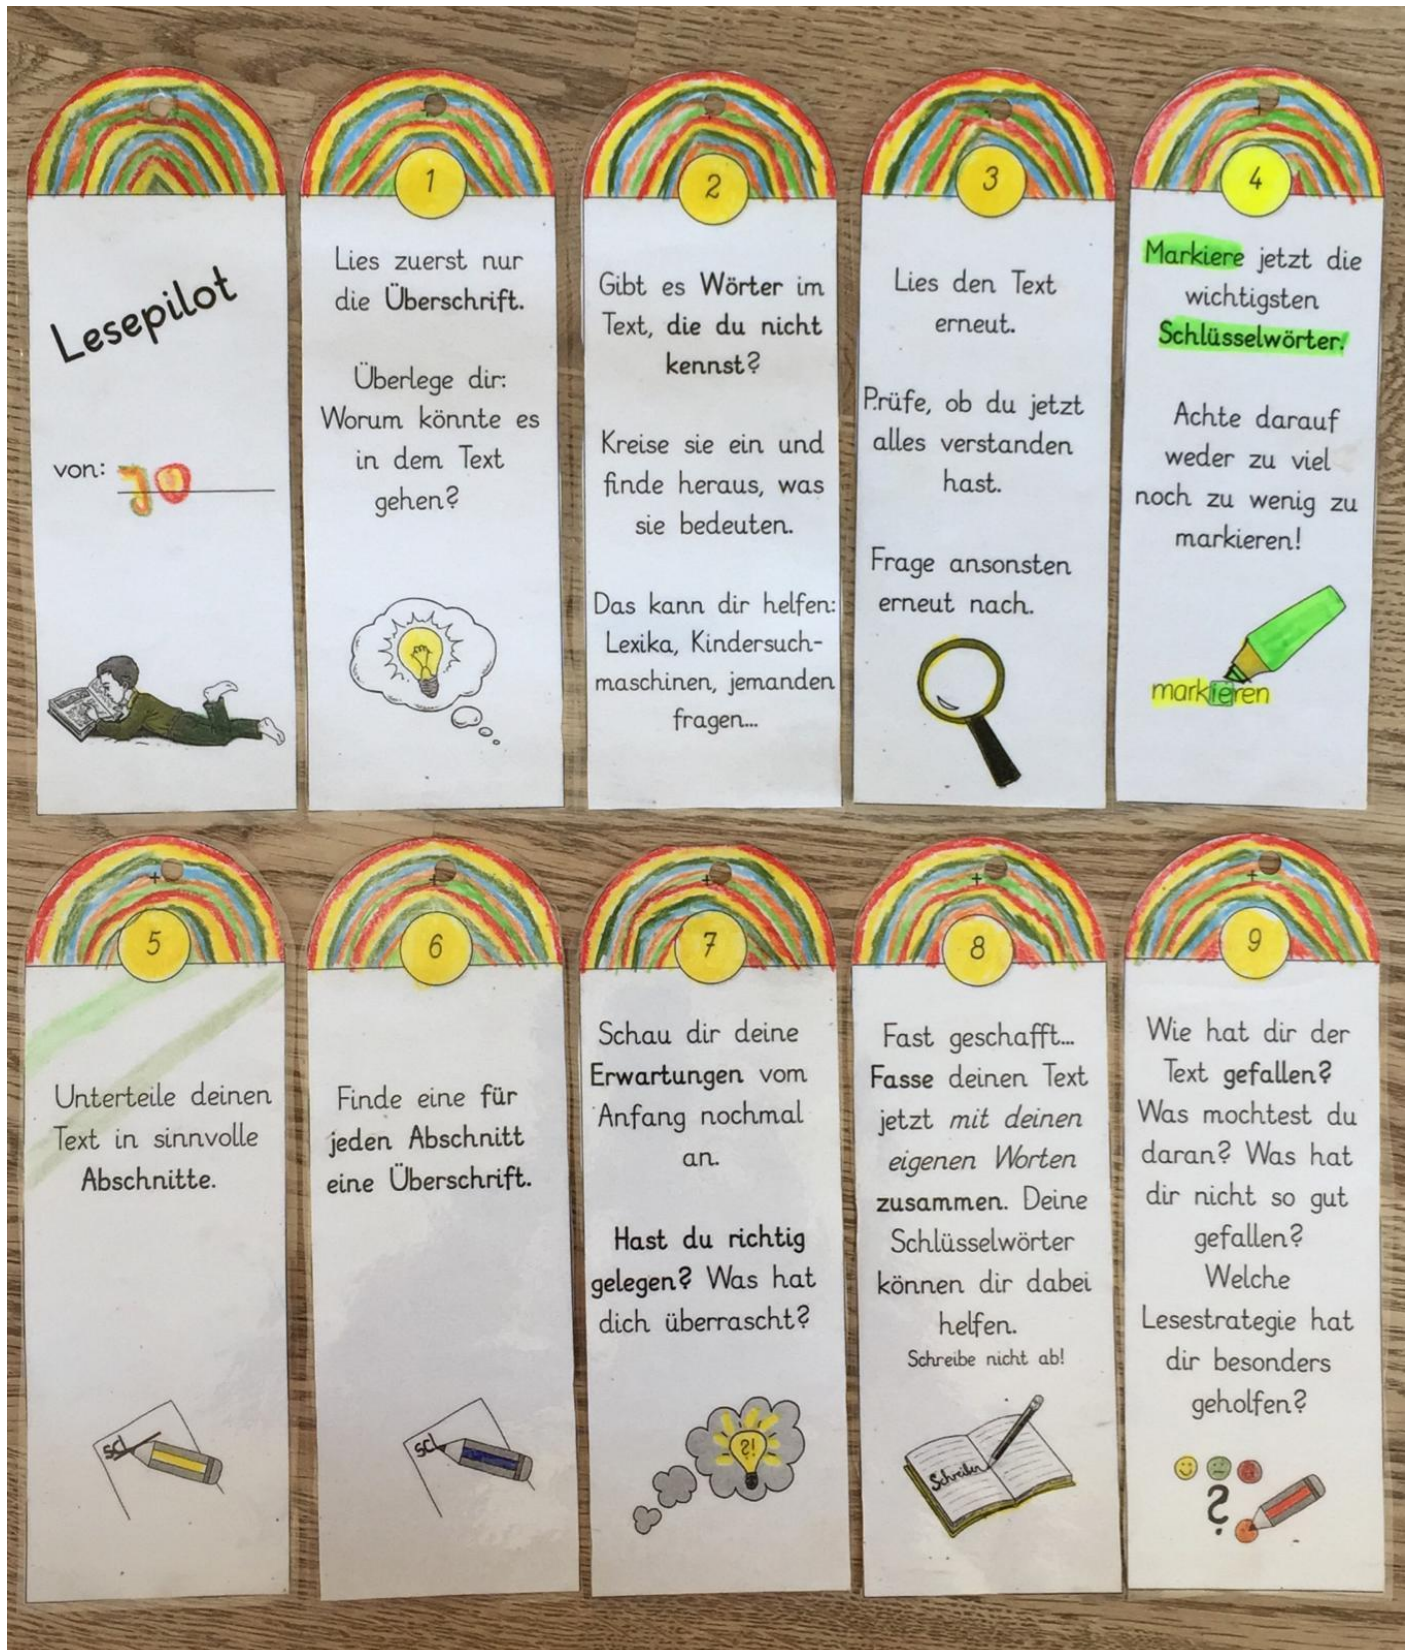 Lesepilot
von: JO
1
Lies zuerst nur
die Überschrift.
Überlege dir:
Worum könnte es
in dem Text
gehen?
2
Gibt es Wörter im
Text, die du nicht
kennst?
Kreise sie ein und
finde heraus, was
sie bedeuten.
Das kann dir helfen:
Lexika, Kindersuch-
maschinen, jemanden
fragen...
3
Lies den Text
erneut.
Prüfe, ob du jetzt
alles verstanden
hast.
Frage ansonsten
erneut nach.
4
Markiere jetzt die
wichtigsten
Schlüsselwörter!
Achte darauf
weder zu viel
noch zu wenig zu
markieren!
markieren
5
Unterteile deinen
Text in sinnvolle
Abschnitte.
scl
6
Finde eine für
jeden Abschnitt
eine Überschrift.
scl
7
Schau dir deine
Erwartungen vom
Anfang nochmal
an.
Hast du richtig
gelegen? Was hat
dich überrascht?
?!
8
Fast geschafft...
Fasse deinen Text
jetzt mit deinen
eigenen Worten
zusammen. Deine
Schlüsselwörter
können dir dabei
helfen.
Schreibe nicht ab!
Schreiben
9
Wie hat dir der
Text gefallen?
Was mochtest du
daran? Was hat
dir nicht so gut
gefallen?
Welche
Lesestrategie hat
dir besonders
geholfen?
?